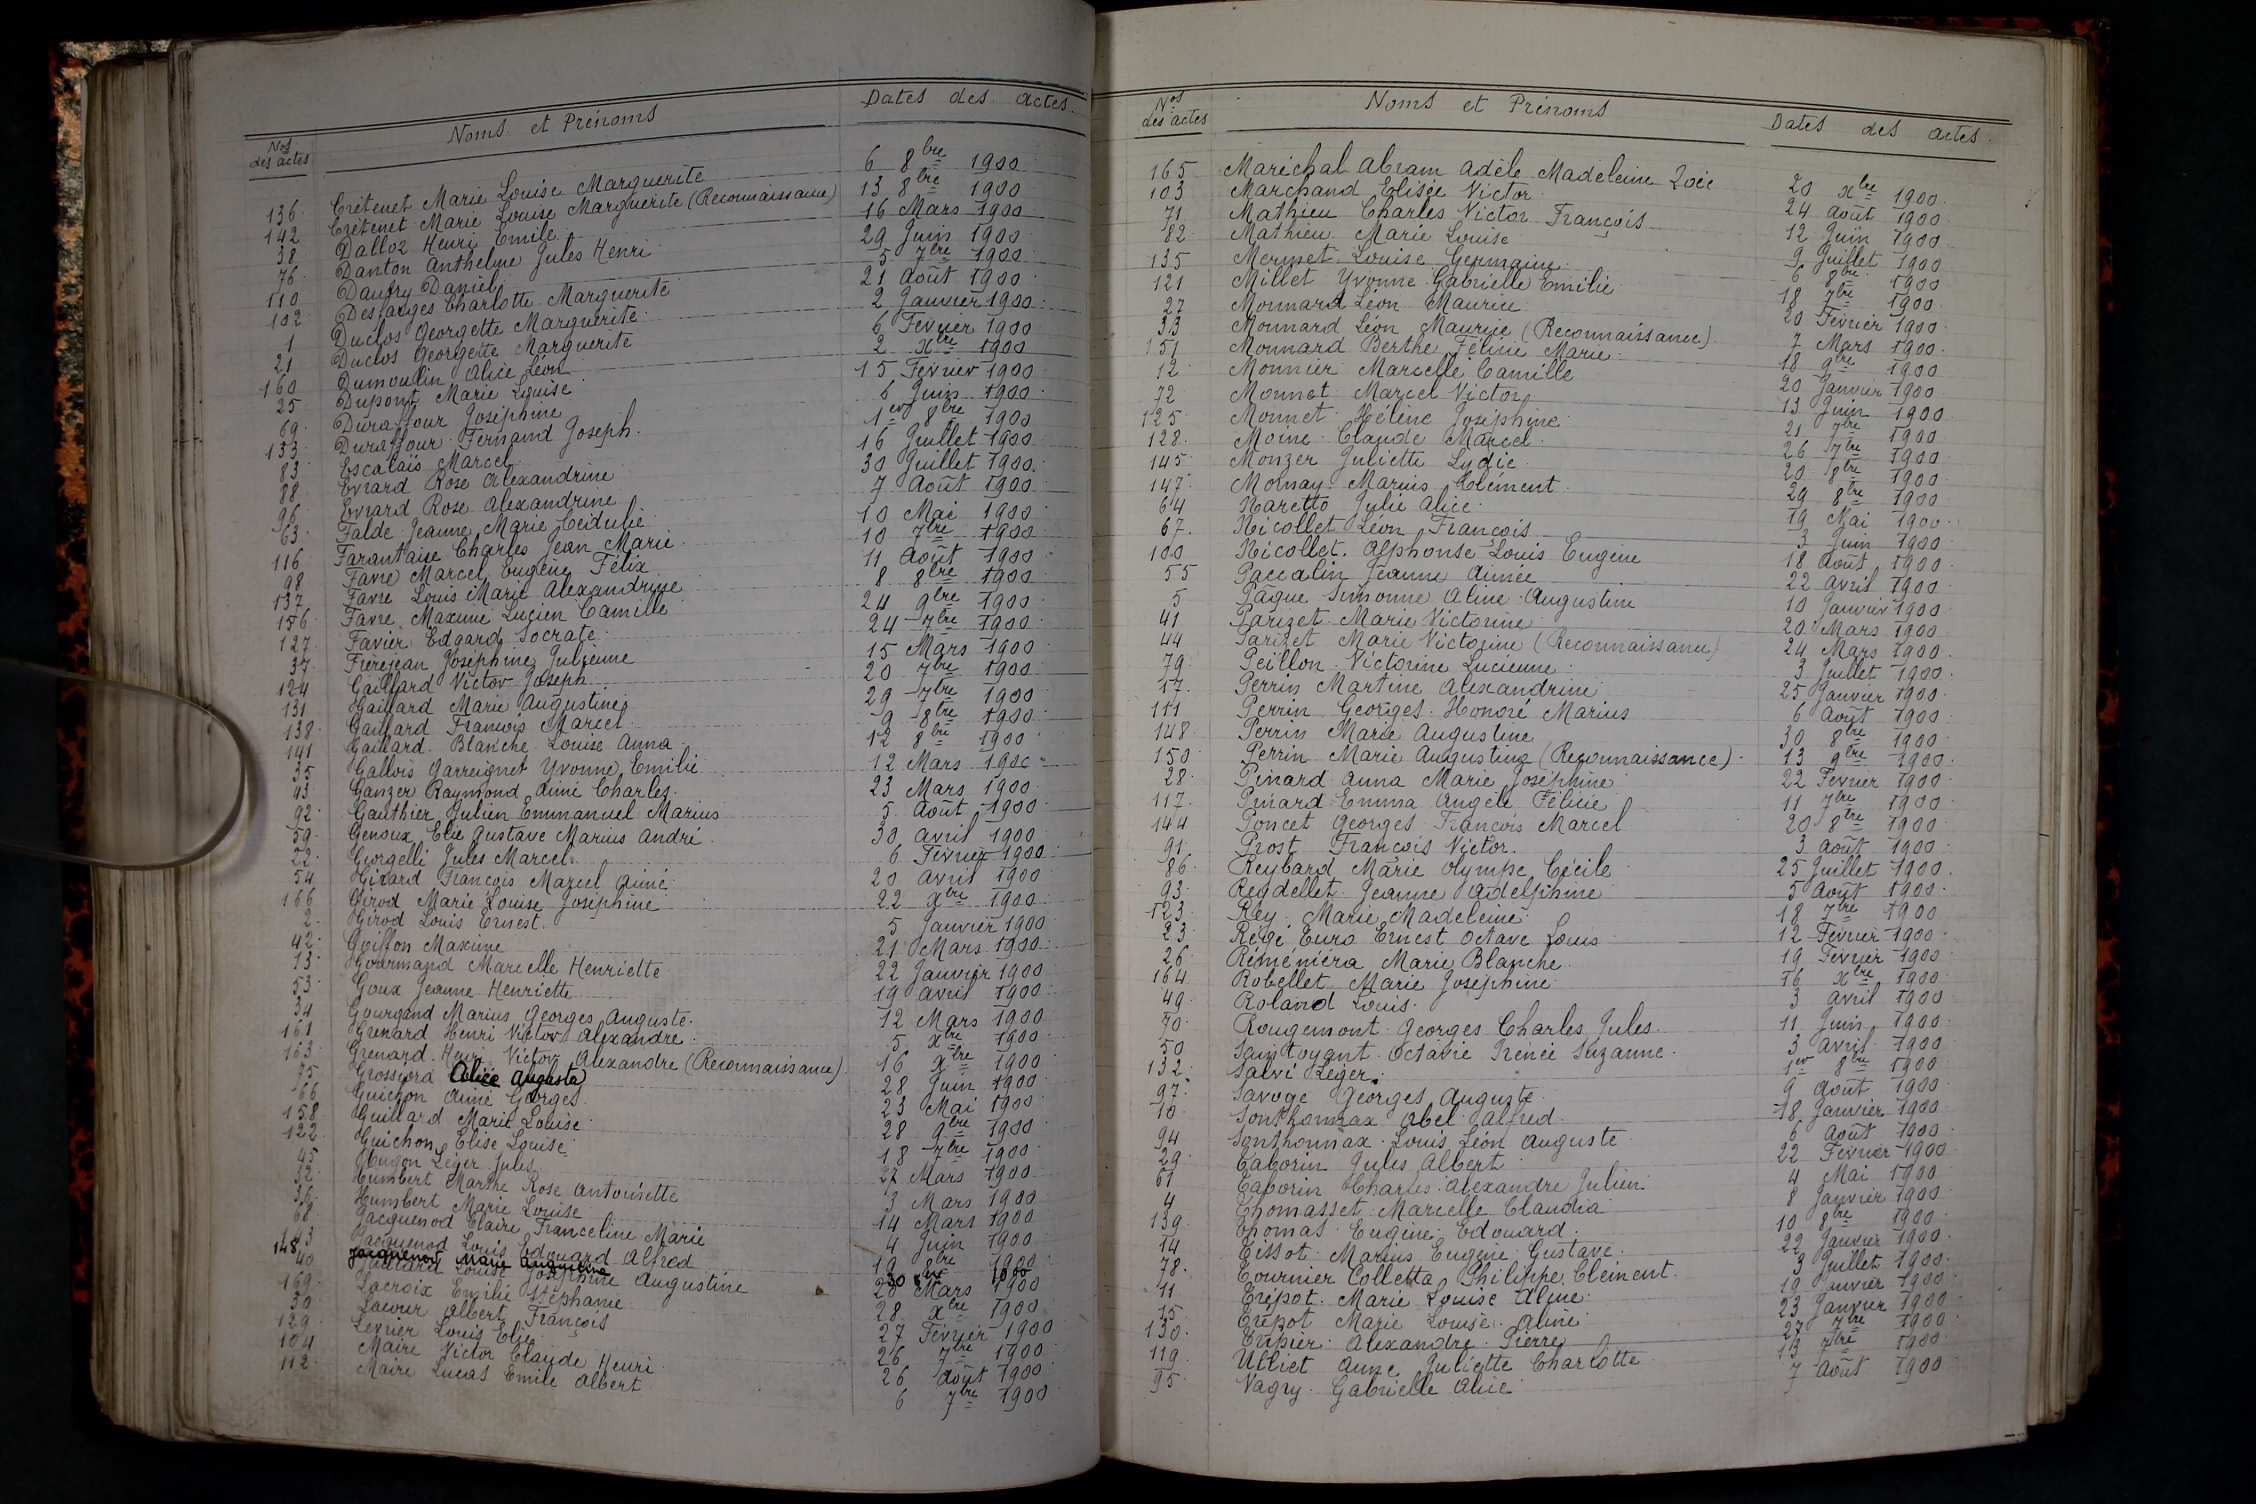 Nos des actes Noms et Prénoms Dates des actes
136 Crétenet Marie Louise Marguerite 6 8bre 1900
142 Crétenet Marie Louise Marguerite (Reconnaissance) 13 8bre 1900
38 Dalloz Henri Emile 16 Mars 1900
76 Danton Anthelme Jules Henri 29 Juin 1900
110 Daudry Daniel 5 7bre 1900
102 Desfarges Charlotte Marguerite 21 Août 1900
1 Duclos Georgette Marguerite 2 Janvier 1900
21 Duclos Georgette Marguerite 6 Février 1900
160 Dumoulin Alice Léon 2 Xbre 1900
25 Dupont Marie Louise 15 Février 1900
69 Duraffour Joséphine 6 Juin 1900
133 Duraffour Fernand Joseph 1er 8bre 1900
83 Escalaïs Marcel 16 Juillet 1900
88 Evrard Rose Alexandrine 30 Juillet 1900
96 Evrard Rose Alexandrine 7 Août 1900
63 Falde Jeanne Marie Cédulie 10 Mai 1900
116 Farantaise Charles Jean Marie 10 7bre 1900
98 Favre Marcel Eugène Félix 11 Août 1900
137 Favre Louis Marie Alexandrine 8 8bre 1900
156 Favre Maxime Lucien Camille 24 9bre 1900
127 Favier Edgard Socrate 24 7bre 1900
37 Frèrejean Joséphine Julienne 15 Mars 1900
124 Gaillard Victor Joseph 20 7bre 1900
131 Gaillard Marie Augustine 29 7bre 1900
138 Gaillard François Marcel 9 8bre 1900
141 Gaillard Blanche Louise Anna 12 8bre 1900
35 Gallois Garreignet Yvonne Emilie 12 Mars 1900
43 Ganzer Raymond Aimé Charles 23 Mars 1900
92 Gauthier Julien Emmanuel Marius 5 Août 1900
59 Genoux Elie Gustave Marius André 30 Avril 1900
22 Giorgelli Jules Marcel 6 Février 1900
54 Girard François Marcel Aimé 20 Avril 1900
166 Girod Marie Louise Joséphine 22 Xbre 1900
2 Girod Louis Ernest 5 Janvier 1900
42 Goiffon Maxime 21 Mars 1900
13 Gourmand Marcelle Henriette 22 Janvier 1900
53 Goux Jeanne Henriette 19 Avril 1900
34 Gourgand Marius Georges Auguste 12 Mars 1900
161 Grenard Henri Victor Alexandre 5 Xbre 1900
163 Grenard Henri Victor Alexandre (Reconnaissance) 16 Xbre 1900
75 Grossiord Alice Augusta 28 Juin 1900
66 Guichon Aimé Georges 23 Mai 1900
158 Guillard Marie Louise 28 9bre 1900
122 Guichon Elise Louise 18 7bre 1900
45 Hugon Léger Jules 27 Mars 1900
32 Humbert Marthe Rose Antoinette 3 Mars 1900
36 Humbert Marie Louise 14 Mars 1900
68 Jacquenod Claire Franceline Marie 4 Juin 1900
143 Jacquenod Louis Edouard Alfred 19 8bre 1900
148 Jacquenod Marie Augustine 30 8bre 1900
40 Juillard Louise Joséphine Augustine 20 Mars 1900
169 Lacroix Emilie Stéphanie 28 Xbre 1900
30 Lacour Albert François 27 Février 1900
129 Levrier Louis Elie 26 7bre 1900
104 Maire Victor Claude Henri 26 Août 1900
112 Maire Lucas Emile Albert 6 7bre 1900
Nos des actes Noms et Prénoms Dates des actes
165 Maréchal Abram Adèle Madeleine Zoée 20 Xbre 1900
103 Marchand Elisée Victor 24 Août 1900
71 Mathieu Charles Victor François 12 Juin 1900
82 Mathieu Marie Louise 9 Juillet 1900
135 Mermet Louise Germaine 6 8bre 1900
121 Millet Yvonne Gabrielle Emilie 18 7bre 1900
27 Monnard Léon Maurice 20 Février 1900
33 Monnard Léon Maurice (Reconnaissance) 7 Mars 1900
151 Monnard Berthe Félicie Marie 18 9bre 1900
12 Monnier Marcelle Camille 20 Janvier 1900
72 Monnet Marcel Victor 13 Juin 1900
125 Monnet Hélène Joséphine 21 7bre 1900
128 Moine Claude Marcel 26 7bre 1900
145 Monzer Juliette Lydie 20 8bre 1900
147 Mornay Marius Clément 29 8bre 1900
64 Naretto Julie Alice 19 Mai 1900
67 Nicollet Léon François 3 Juin 1900
100 Nicollet Alphonse Louis Eugène 18 Août 1900
55 Paccalin Jeanne Aimée 22 Avril 1900
5 Pâque Simonne Aline Augustine 10 Janvier 1900
41 Parizet Marie Victorine 20 Mars 1900
44 Parizet Marie Victorine (Reconnaissance) 24 Mars 1900
79 Peillon Victorine Lucienne 3 Juillet 1900
17 Perrin Martine Alexandrine 25 Janvier 1900
111 Perrin Georges Honoré Marius 6 Août 1900
148 Perrin Marie Augustine 30 8bre 1900
150 Perrin Marie Augustine (Reconnaissance) 13 9bre 1900
28 Pinard Anna Marie Joséphine 22 Février 1900
117 Pinard Emma Angèle Félicie 11 7bre 1900
144 Poncet Georges François Marcel 20 8bre 1900
91 Prost François Victor 3 Août 1900
86 Reybard Marie Olympe Cécile 25 Juillet 1900
93 Reydellet Jeanne Adelphine 5 Août 1900
123 Rey Marie Madeleine 18 7bre 1900
23 Régé Euro Ernest Octave Louis 12 Février 1900
26 Réméniéra Marie Blanche 19 Février 1900
164 Robellet Marie Joséphine 16 Xbre 1900
49 Roland Louis 3 Avril 1900
70 Rougemont Georges Charles Jules 11 Juin 1900
50 Saintoyant Octavie Irénée Suzanne 3 Avril 1900
132 Salvi Léger 1er 8bre 1900
97 Savoye Georges Auguste 9 Août 1900
10 Sonthonnax Abel Alfred 18 Janvier 1900
94 Sonthonnax Louis Léon Auguste 6 Août 1900
29 Taborin Jules Albert 22 Février 1900
61 Taborin Charles Alexandre Julien 4 Mai 1900
4 Thomasset Marcelle Claudia 8 Janvier 1900
139 Thomas Eugène Edouard 10 8bre 1900
14 Tissot Marius Eugène Gustave 22 Janvier 1900
78 Tournier Colletta Philippe Clément 3 Juillet 1900
11 Trépot Marie Louise Aline 19 Janvier 1900
15 Trépot Marie Louise Aline 23 Janvier 1900
130 Tripier Alexandre Pierre 27 7bre 1900
119 Ulliet Anne Juliette Charlotte 13 7bre 1900
95 Vagry Gabrielle Alice 7 Août 1900